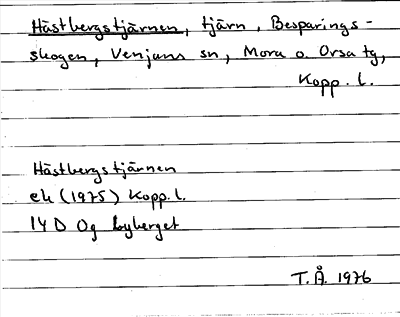 Hästbergstjärnen, tjärn, Besparings-
skogen, Venjans sn, Mora o. Orsa tg,
Kopp. l.
Hästbergstjärnen
ek (1975) Kopp. l.
14 D 0g Lyberget
T.Å. 1976